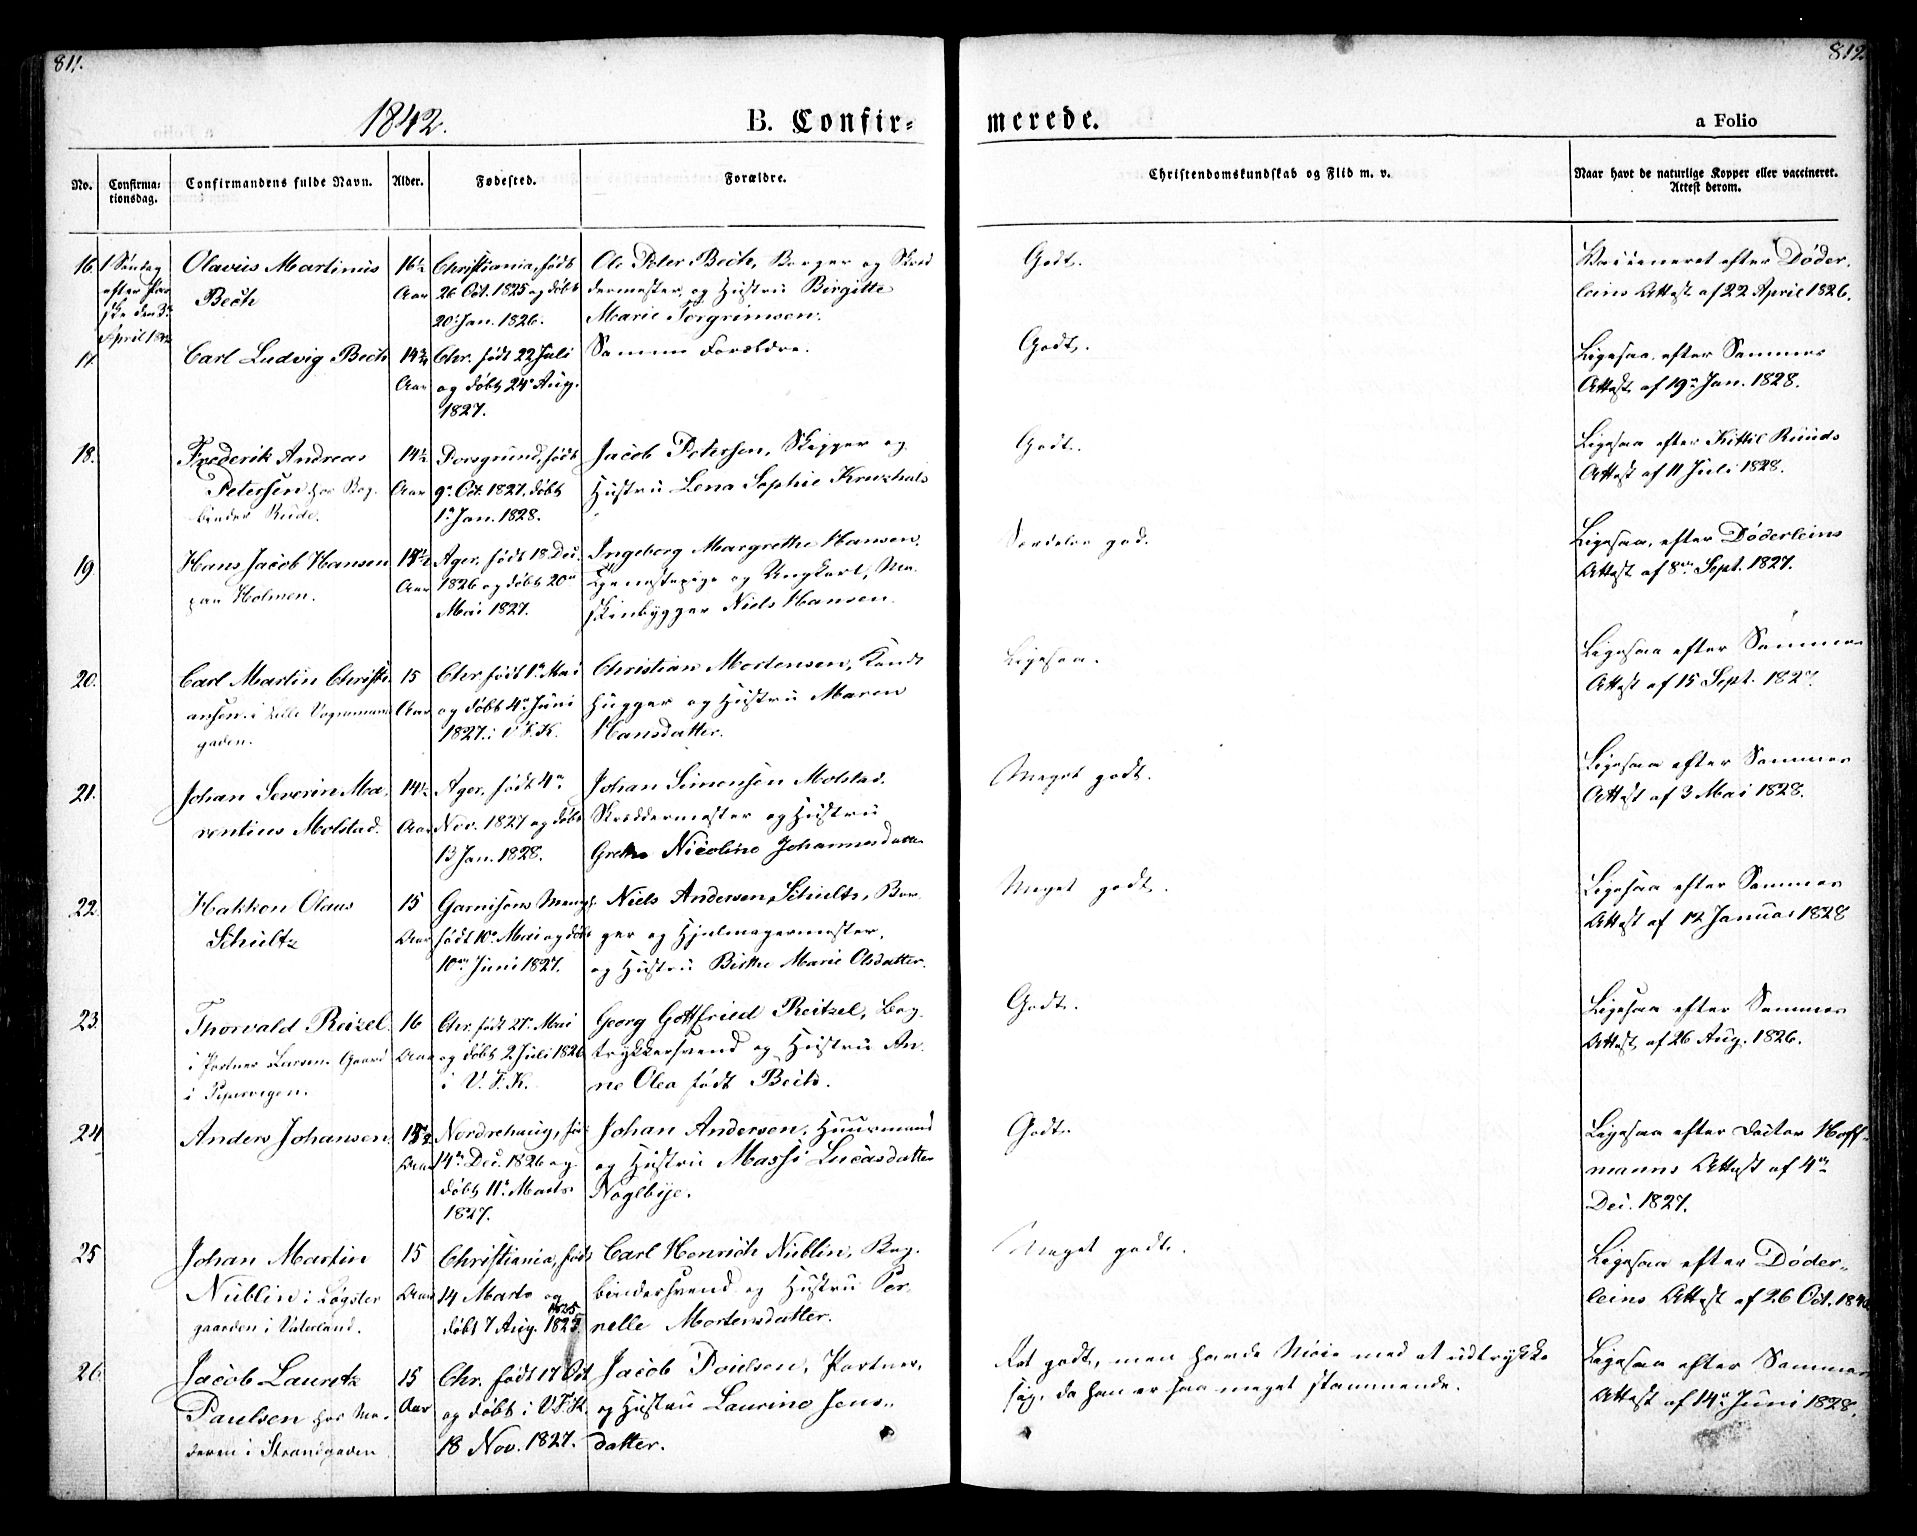 811.
812.
1842.
B. Confir-
merede.
a Folio
No.
Confirma-
tionsdag.
Confirmandens fulde Navn.
Alder.
Fødested.
Forældre.
Christendomskundskab og Flid m. v.
Naar havt de naturlige Kopper eller vaccineret.
Attest derom.
16.
1 Søndag
efter Paa
ske den 3die
April 1842
Olavus Martinus
Bech
16½
Aar
Christiania, født
26 Oct. 1825 og døbt
20 Jan. 1826.
Ole Peter Bech, Borger og Skræd
dermester, og Hustru Birgitte
Marie Torgrimsen.
Godt.
Vaccineret efter Døder-
leins Attest af 22 April 1826.
17.
Carl Ludvig Bech
14¾
Aar
Chr. født 22 Juli
og døbt 24 Aug.
1827.
Samme Forældre.
Godt.
Ligesaa, efter Sammes
Attest af 19 Jan. 1828.
18.
Frederik Andreas
Petersen hos Bog-
binder Rude.
14½
Aar
Porsgrund, født
9 Oct. 1827, døbt
1 Jan. 1828.
Jacob Petersen, Skipper og
Hustru Lena Sophie
Godt.
Ligesaa efter Kittil Ruuds
Attest af 11 Juli 1828.
19.
Hans Jacob Hansen
paa Holmen.
15½
Aar
Ager, født 18 Dec.
1826 og døbt 20
Mai 1827.
Ingeborg Margrethe Hansen,
Tjenestepige og Ungkarl, Ma-
skinbygger Niels Hansen.
Særdeles god.
Ligesaa, efter Døderleins
Attest af 8 Sept. 1827.
20.
Carl Martin Christi-
ansen i lille Vognmand
gaden.
15
Aar
Chr født 1 Mai
og døbt 4 Juni
1827 i V.F.K.
Christian Mortensen,
hugger og Hustru Maren
Hansdatter.
Ligesaa.
Ligesaa efter Sammes
Attest af 15 Sept. 1827.
21.
Johan Severin Ma-
rentius Molstad.
14½
Aar
Ager, født 4
Nov. 1827 og døbt
13 Jan. 1828.
Johan Simensen Molstad,
Skræddermester og Hustru
Grethe Nicoline Johannesdatter
Meget godt.
Ligesaa efter Sammes
Attest af 3 Mai 1828.
22.
Hakkon Olaus
Schultz
15
Aar
Garnisons Menigh.
født 10 Mai og døbt
10 Juni 1827.
Niels Andersen Schultz, Bor-
ger og Hjulmagermester,
og Hustru Birthe Marie Olsdatter.
Meget godt.
Ligesaa efter Sammes
Attest af 12 Januar 1828
23.
Thorvald Reizel
i Portner Larsens Gaard
i Pipervigen.
16
Aar
Chr. født 27 Mai
og døbt 2 Juli 1826
i V.F.K.
Georg Gottfried Reitzel, Bog-
trykkersvend og Hustru An-
ne Olea født Bech.
Godt.
Ligesaa efter Sammes
Attest af 26 Aug. 1826.
24
Anders Johansen
15½
Aar
Nordrehaug, født
14 Dec. 1826 og
døbt 11 Marts
1827.
Johan Andersen, Huusmand
og Hustru Massi Lucasdatter
Noglbye.
Godt.
Ligesaa efter Doctor Hoff-
manns Attest af 4
Dec. 1827.
25
Johan Martin
Nüblin i Løgster
gaarden i Vaterland.
15
Aar
Christiania, født
14 Marts og
døbt 7 Aug. 1825.
Carl Henrich Nüblin, Bog-
bindersvend og Hustru Per-
nelle Mortensdatter.
Meget godt.
Ligesaa efter Døder-
leins Attest af 26 Oct.
26
Jacob Lauretz
Paulsen hos Mo-
deren i Strandgaden
15
Aar
Chr. født 17 Oct
og døbt i V.F.K.
18 Nov. 1827.
Jacob Poulsen, Portner,
og Hustru Laurine Jens-
datter.
Ret godt, men havde Møie med at udtrykke
sig, da han er saa meget stammende.
Ligesaa efter Sammes
Attest af 14 Juni 1828.